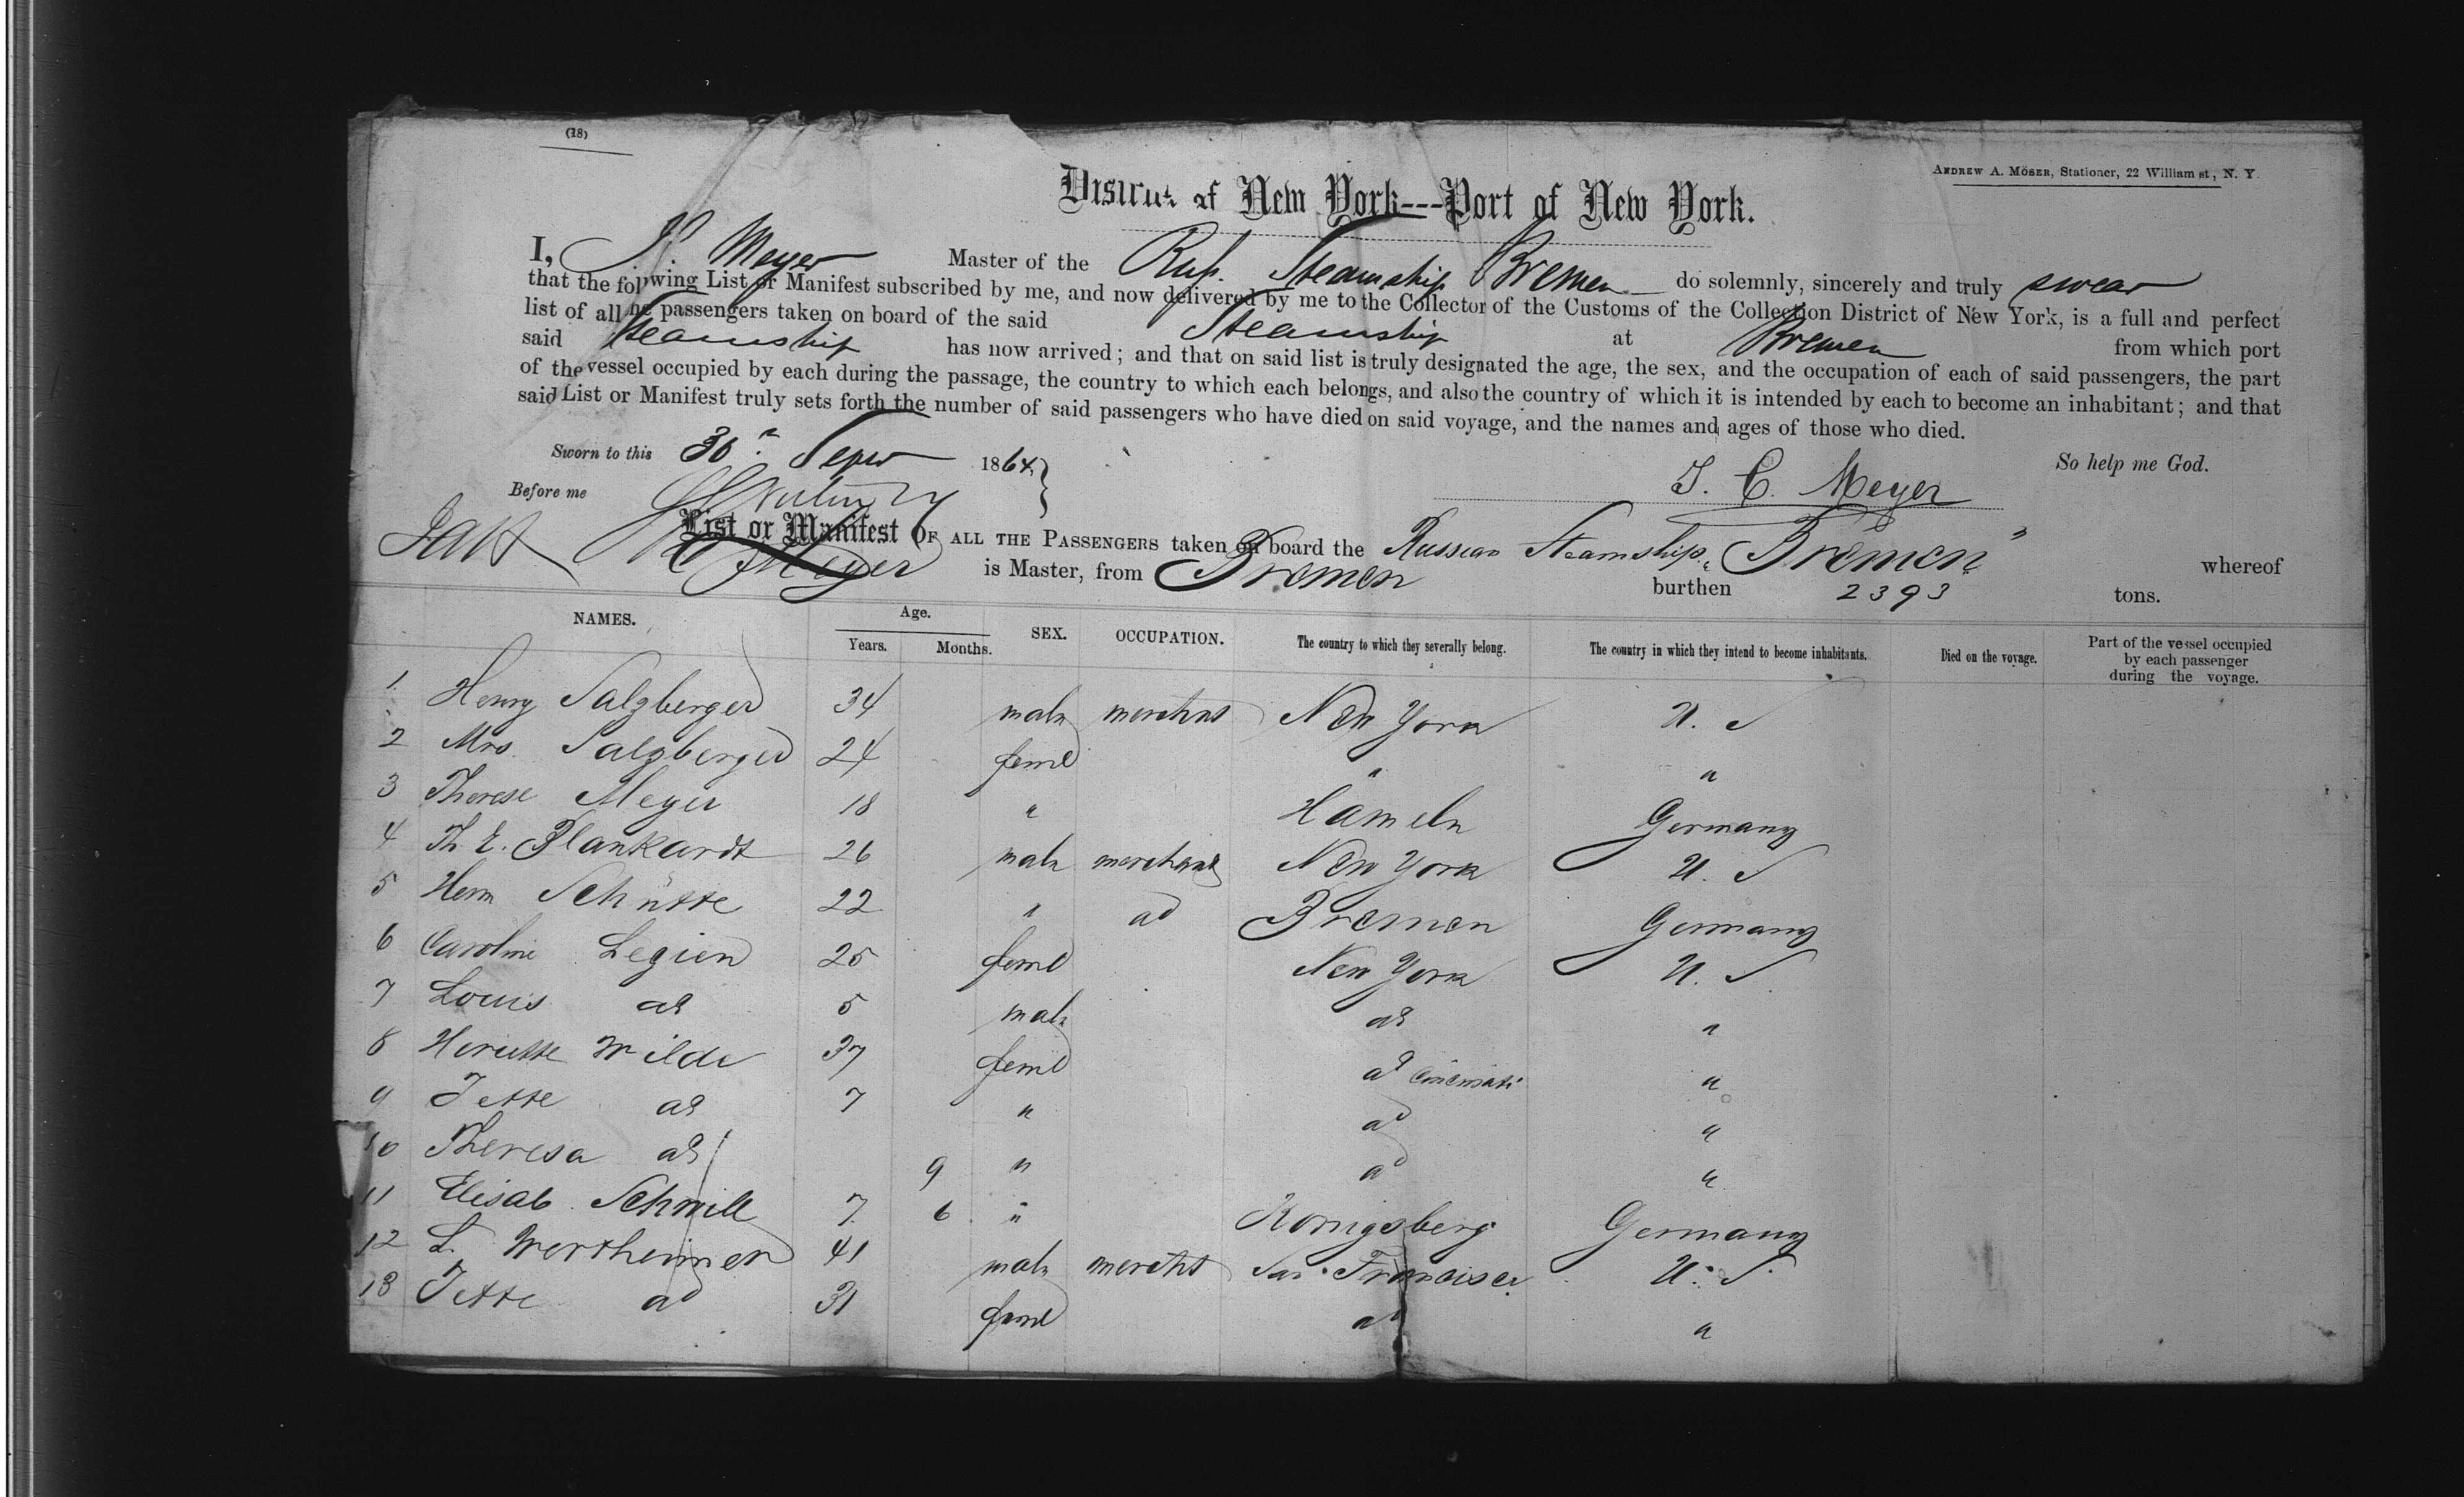 (18)
ANDREW A. MÖSER, Stationer, 22 William st, N. Y.
District of New York---Port of New York.
I, Meyer Master of the Russ. Steamship Bremen do solemnly, sincerely and truly swear
that the following List or Manifest subscribed by me, and now delivered by me to the Collector of the Customs of the Collection District of New York, is a full and perfect
list of all the passengers taken on board of the said Steamship at Bremen from which port
said Steamship has now arrived; and that on said list is truly designated the age, the sex, and the occupation of each of said passengers, the part
of the vessel occupied by each during the passage, the country to which each belongs, and also the country of which it is intended by each to become an inhabitant; and that
said List or Manifest truly sets forth the number of said passengers who have died on said voyage, and the names and ages of those who died.
So help me God.
Sworn to this 30 Sepr 1864,
J. C. Meyer
Before me
List or Manifest OF ALL THE PASSENGERS taken on board the Russian Steamship "Bremen" whereof
Meyer is Master, from Bremen burthen 2393 tons.
NAMES. Age. Years. Months. SEX. OCCUPATION. The country to which they severally belong. The country in which they intend to become inhabitants. Died on the voyage. Part of the vessel occupied by each passenger during the voyage.
1 Henry Salzberger 34 male merchnt New York U. S
2 Mrs. Salzberger 24 feml " "
3 Therese Meyer 18 " Hameln Germany
4 Th. E. Plankardt 26 male merchant New York U. S
5 Herm Schütte 22 " do Bremen Germany
6 Caroline Legien 25 feml New York U. S.
7 Louis do 5 male do "
8 Heriette Wilde 37 feml do Cincinati "
9 Jette do 7 " do "
10 Theresa do 9 " do "
11 Elisab. Schmill 7. 6 " Königsberg Germany
12 L. Wertheimer 41 male mercht San Francisco U. S.
13 Jette do 31 feml do "